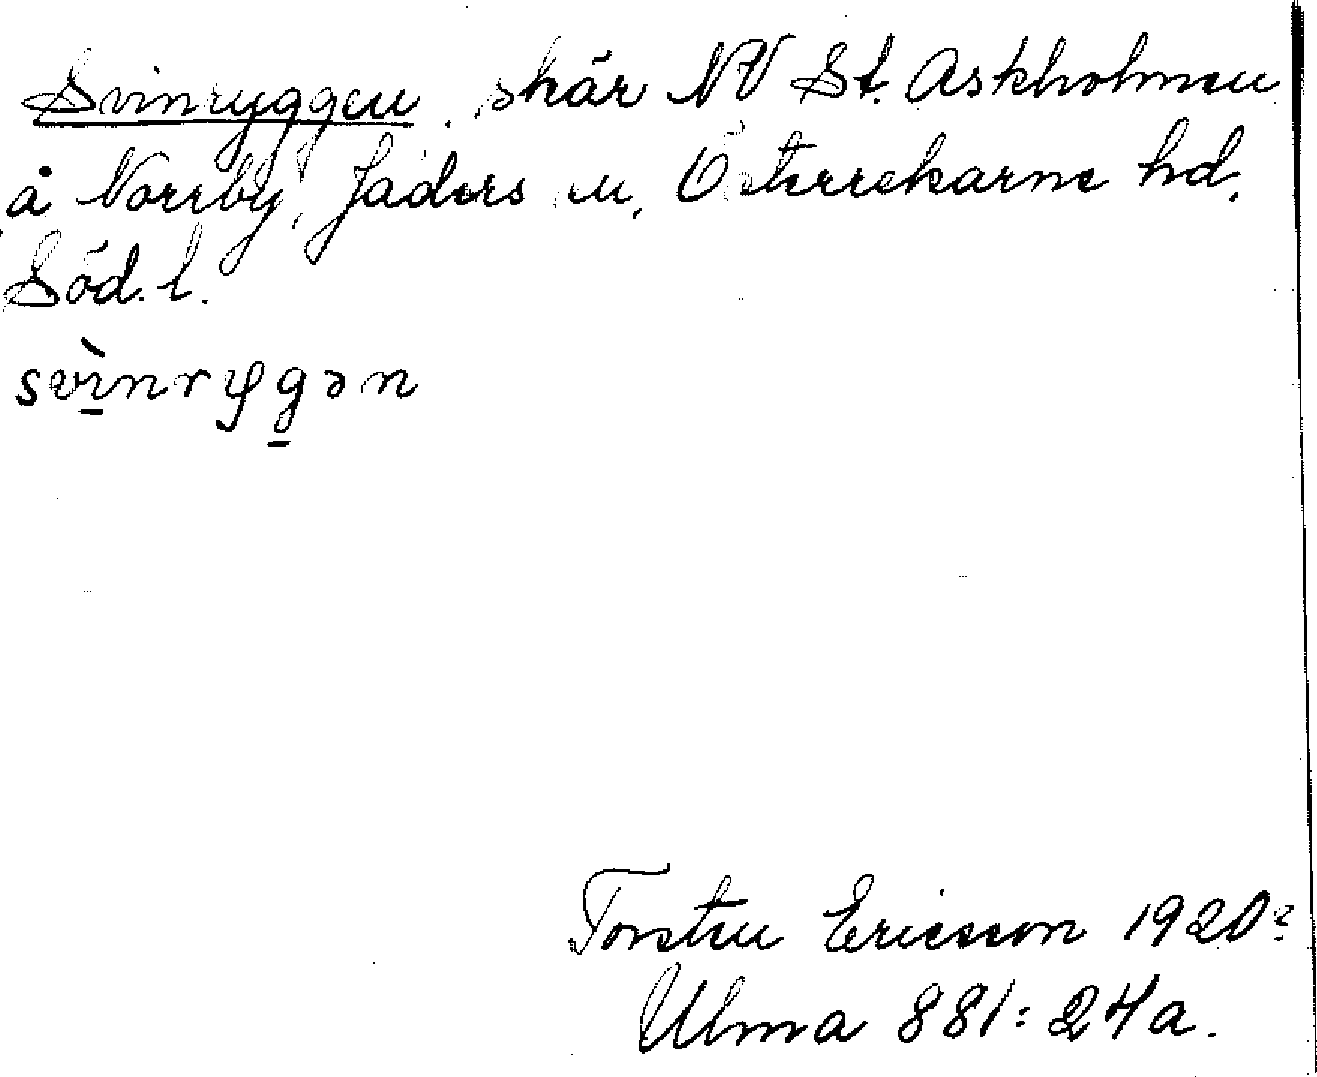 Svinryggen, skär NV St. Askholmen
å Norrby, Jäders sn, Österrekarne hd,
Söd. l.
svì̠nryg̠ən
Torsten Ericsson 1920?
Ulma 881:24a.